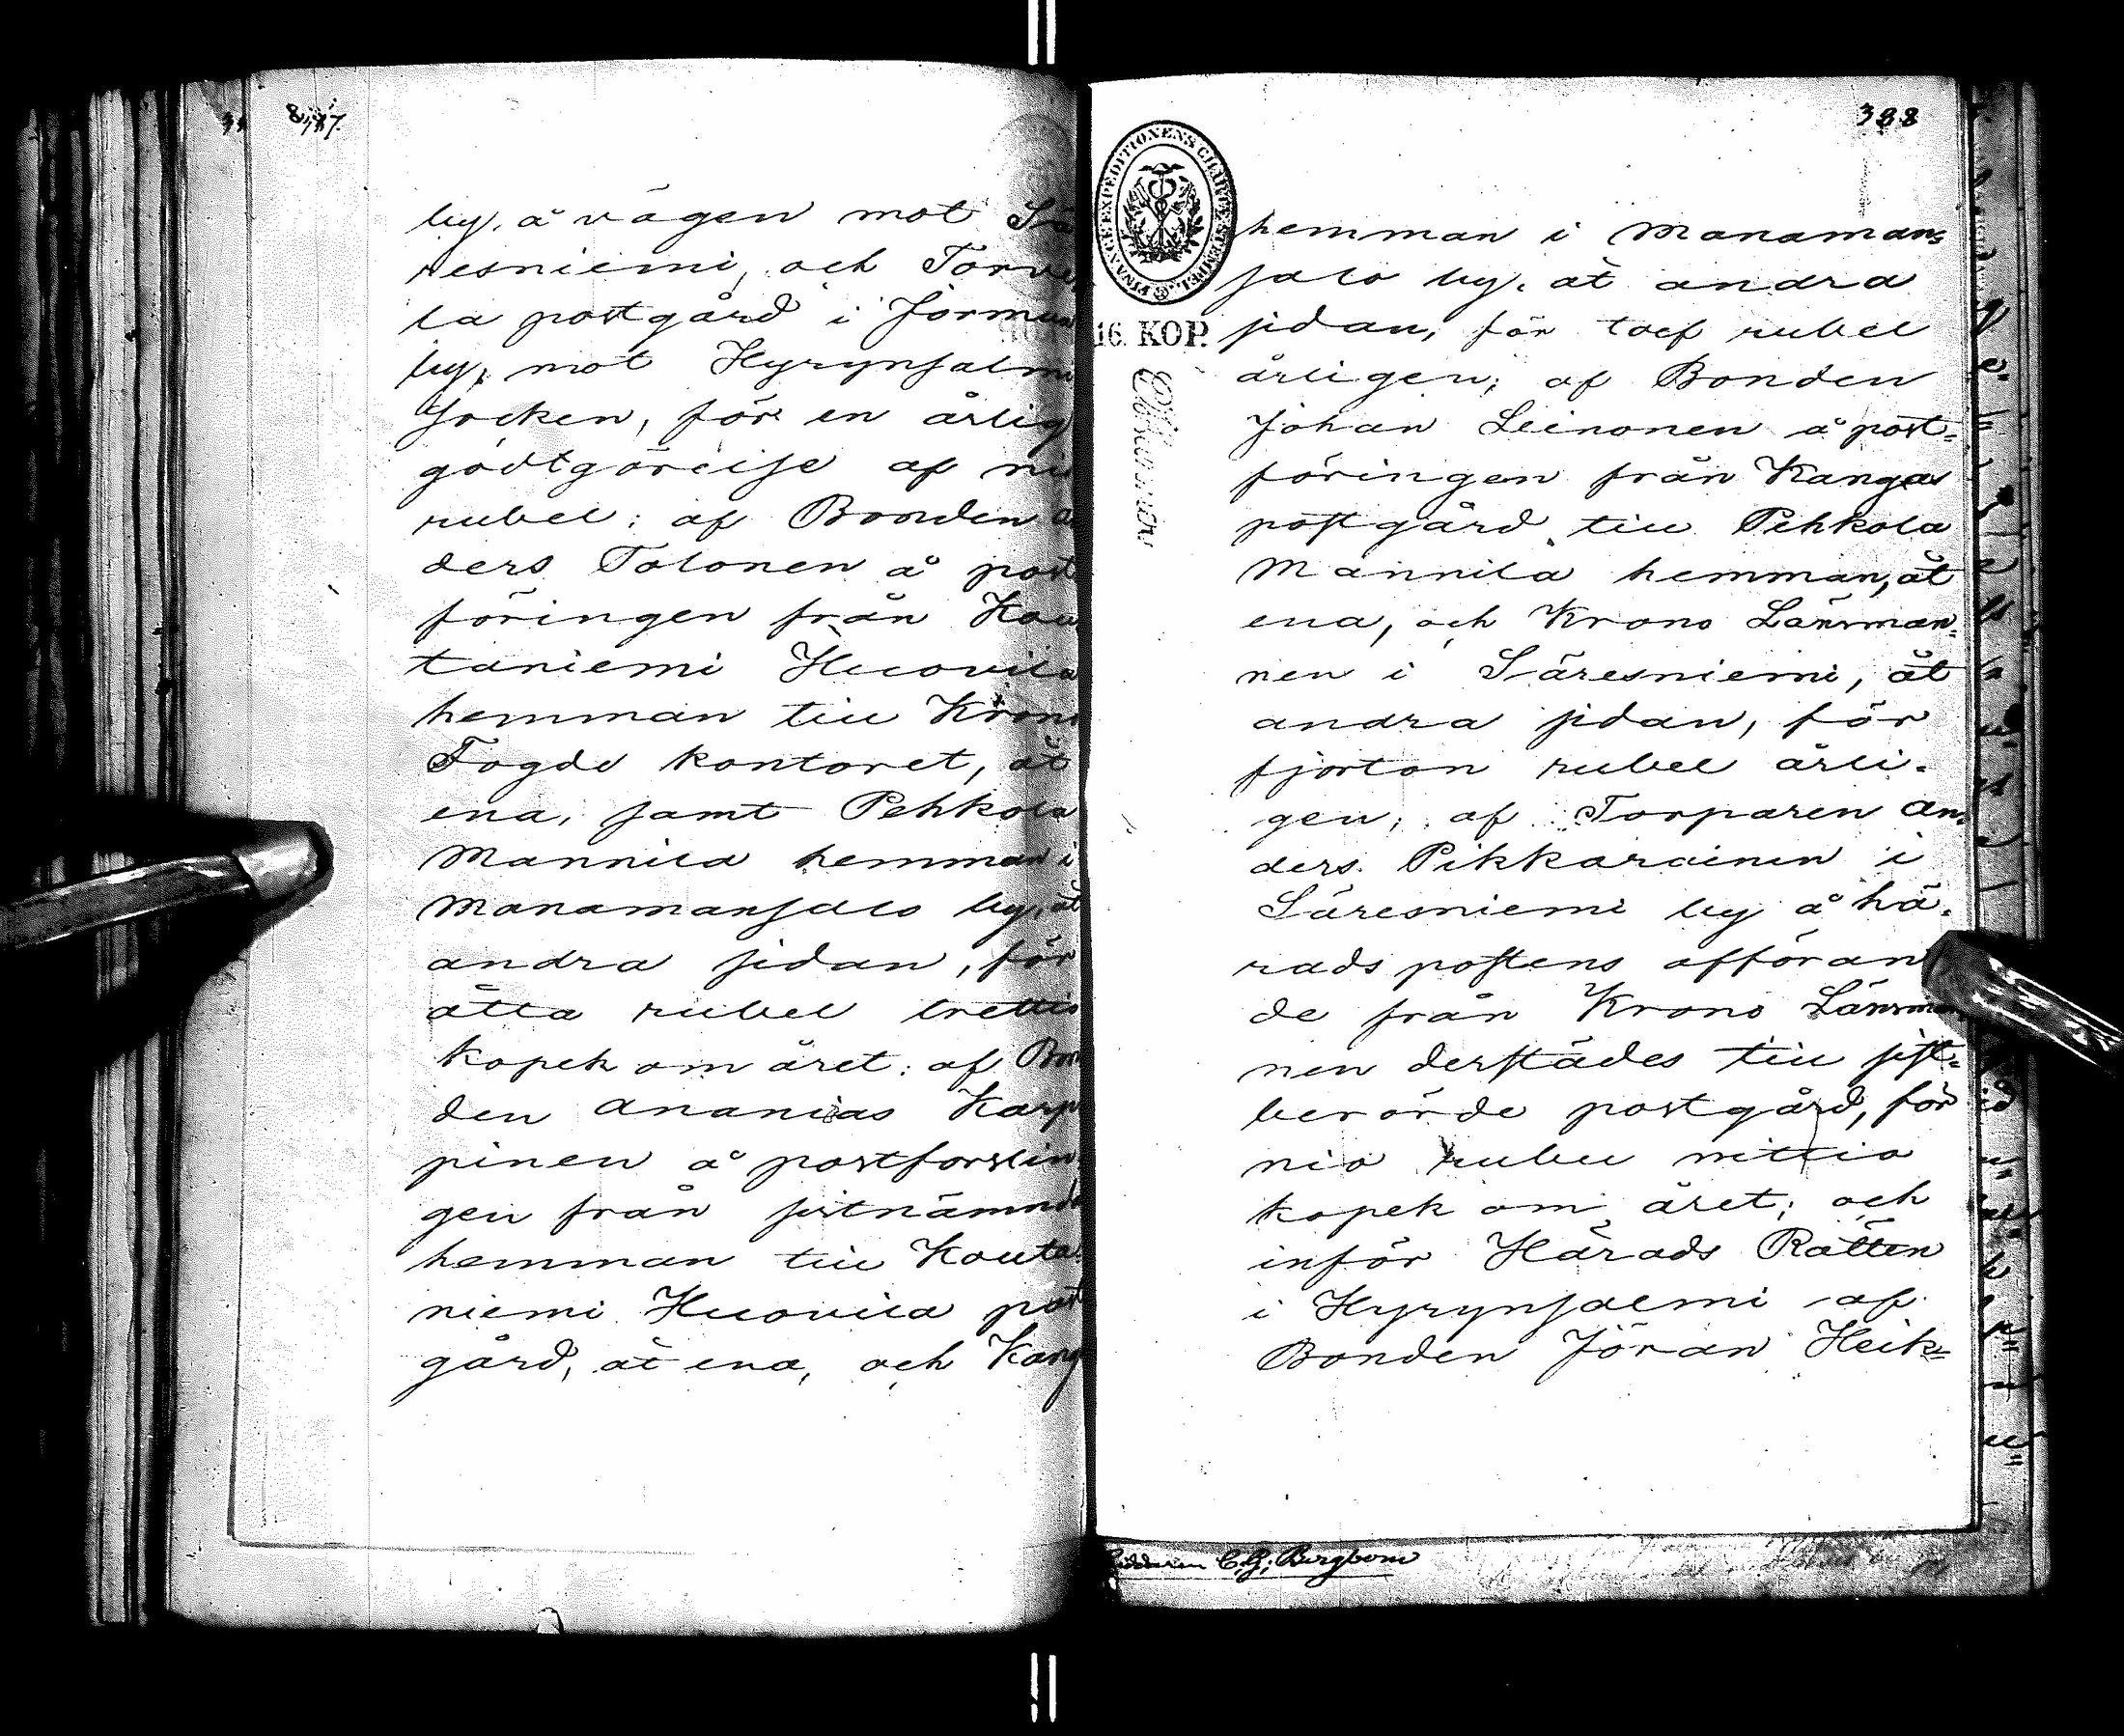 by, å vägen mot Sä
resniemi, och Torve
la postgård i Jormua
by, mot Hyrynsalmi
Socken, för en årlig
godtgörelse af nio
rubel; af Bonden
ders Tolonen å post
föringen från Kou
taniemi Huovila
hemman till Krono
Fogde kontoret, åt
ena, samt Pehkola
Mannila hemman i
Manamansalo by, åt
andra sidan, för
åtta rubel trettio
kopek om året; af Bon
den Ananias Karp
pinen å postforslin
gen från sistnämnde
hemman till Kouta
niemi Huovila post
gård, åt ena, och Kang
388
FINANCEEXPEDITIONENS CHARTÆ STEMPEL.
16. KOP.
hemman i Manaman=
salo by, åt andra
sidan, för tolf rubel
årligen; af Bonden
Johan Leinonen å post=
föringen från Kangas
postgård till Pehkola
Mannila hemman, åt
ena, och Krono Länsman=
nen i Säresniemi, åt
andra sidan, för
fjorton rubel årli=
gen; af Torparen An=
ders Pikkarainen i
Säresniemi by å hä=
rads postens afföran
de från Krono Länsman
nen derstädes till sist=
berörde postgård, för
nio rubel nittio
kopek om året; och
inför Härads Rätten
i Hyrynsalmi af
Bonden Jöran Heik=
C. G. Bergbom